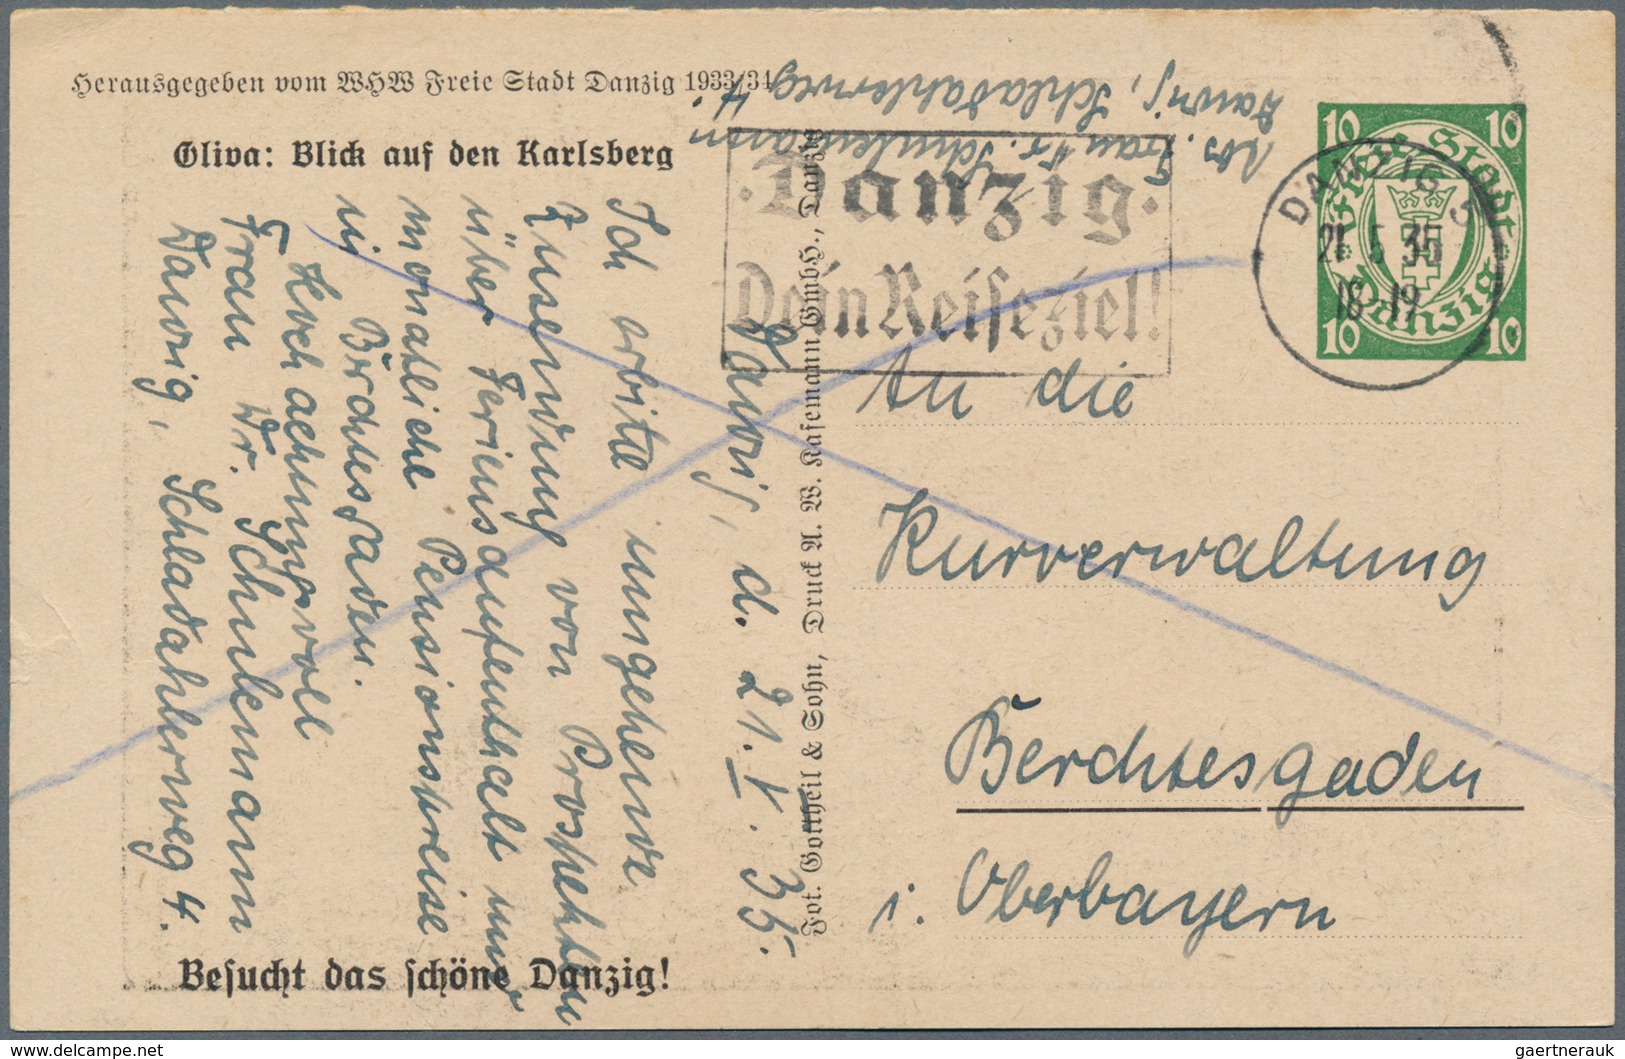 Herausgegeben vom WHW Freie Stadt Danzig 1933/34
Oliva: Blick auf den Karlsberg
Abs. Frau Dr. Schulemann
Danzig, Schladahlerweg 4.
Danzig.
Dein Reiseziel!
10 10
Freie Stadt
Danzig
10 10
DANZIG 5
21 5 35
18-19
Danzig, d. 21. V. 35.
Ich erbitte umgehende
Zusendung von Prospekten
über Ferienaufenthalt und
monatliche Pensionspreise
in Berchtesgaden.
Hochachtungsvoll
Frau Dr. Schulemann
Danzig, Schladahlerweg 4.
Fot. Gottheil & Sohn, Druck A. W. Kafemann GmbH., Danzig
An die
Kurverwaltung
Berchtesgaden
i. Oberbayern
Besucht das schöne Danzig!
gaertnerauk
www.delcampe.net